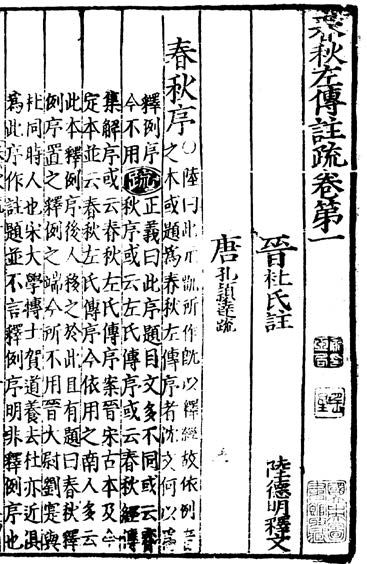 春秋左傳註疏卷第一
晉杜氏註
陸德明釋文
唐孔穎達疏
春秋序○陸曰此元凱所作旣以釋經故依例音
之本或題爲春秋左傳序者沈文何以爲
釋例序
今不用
疏
正義曰此序題目文多不同或云春
秋序或云左氏傳序或云春秋經傳
集解序或云春秋左氏傳序案晉宋古本及今
定本並云春秋左氏傳序今依用之南人多云
此本釋例序後人移之於此且有題曰春秋釋
例序置之釋例之端今所不用晉大尉劉寔與
杜同時人也宋大學博士賀道養去杜亦近俱
爲此序作註題並不言釋例序明非釋例序也